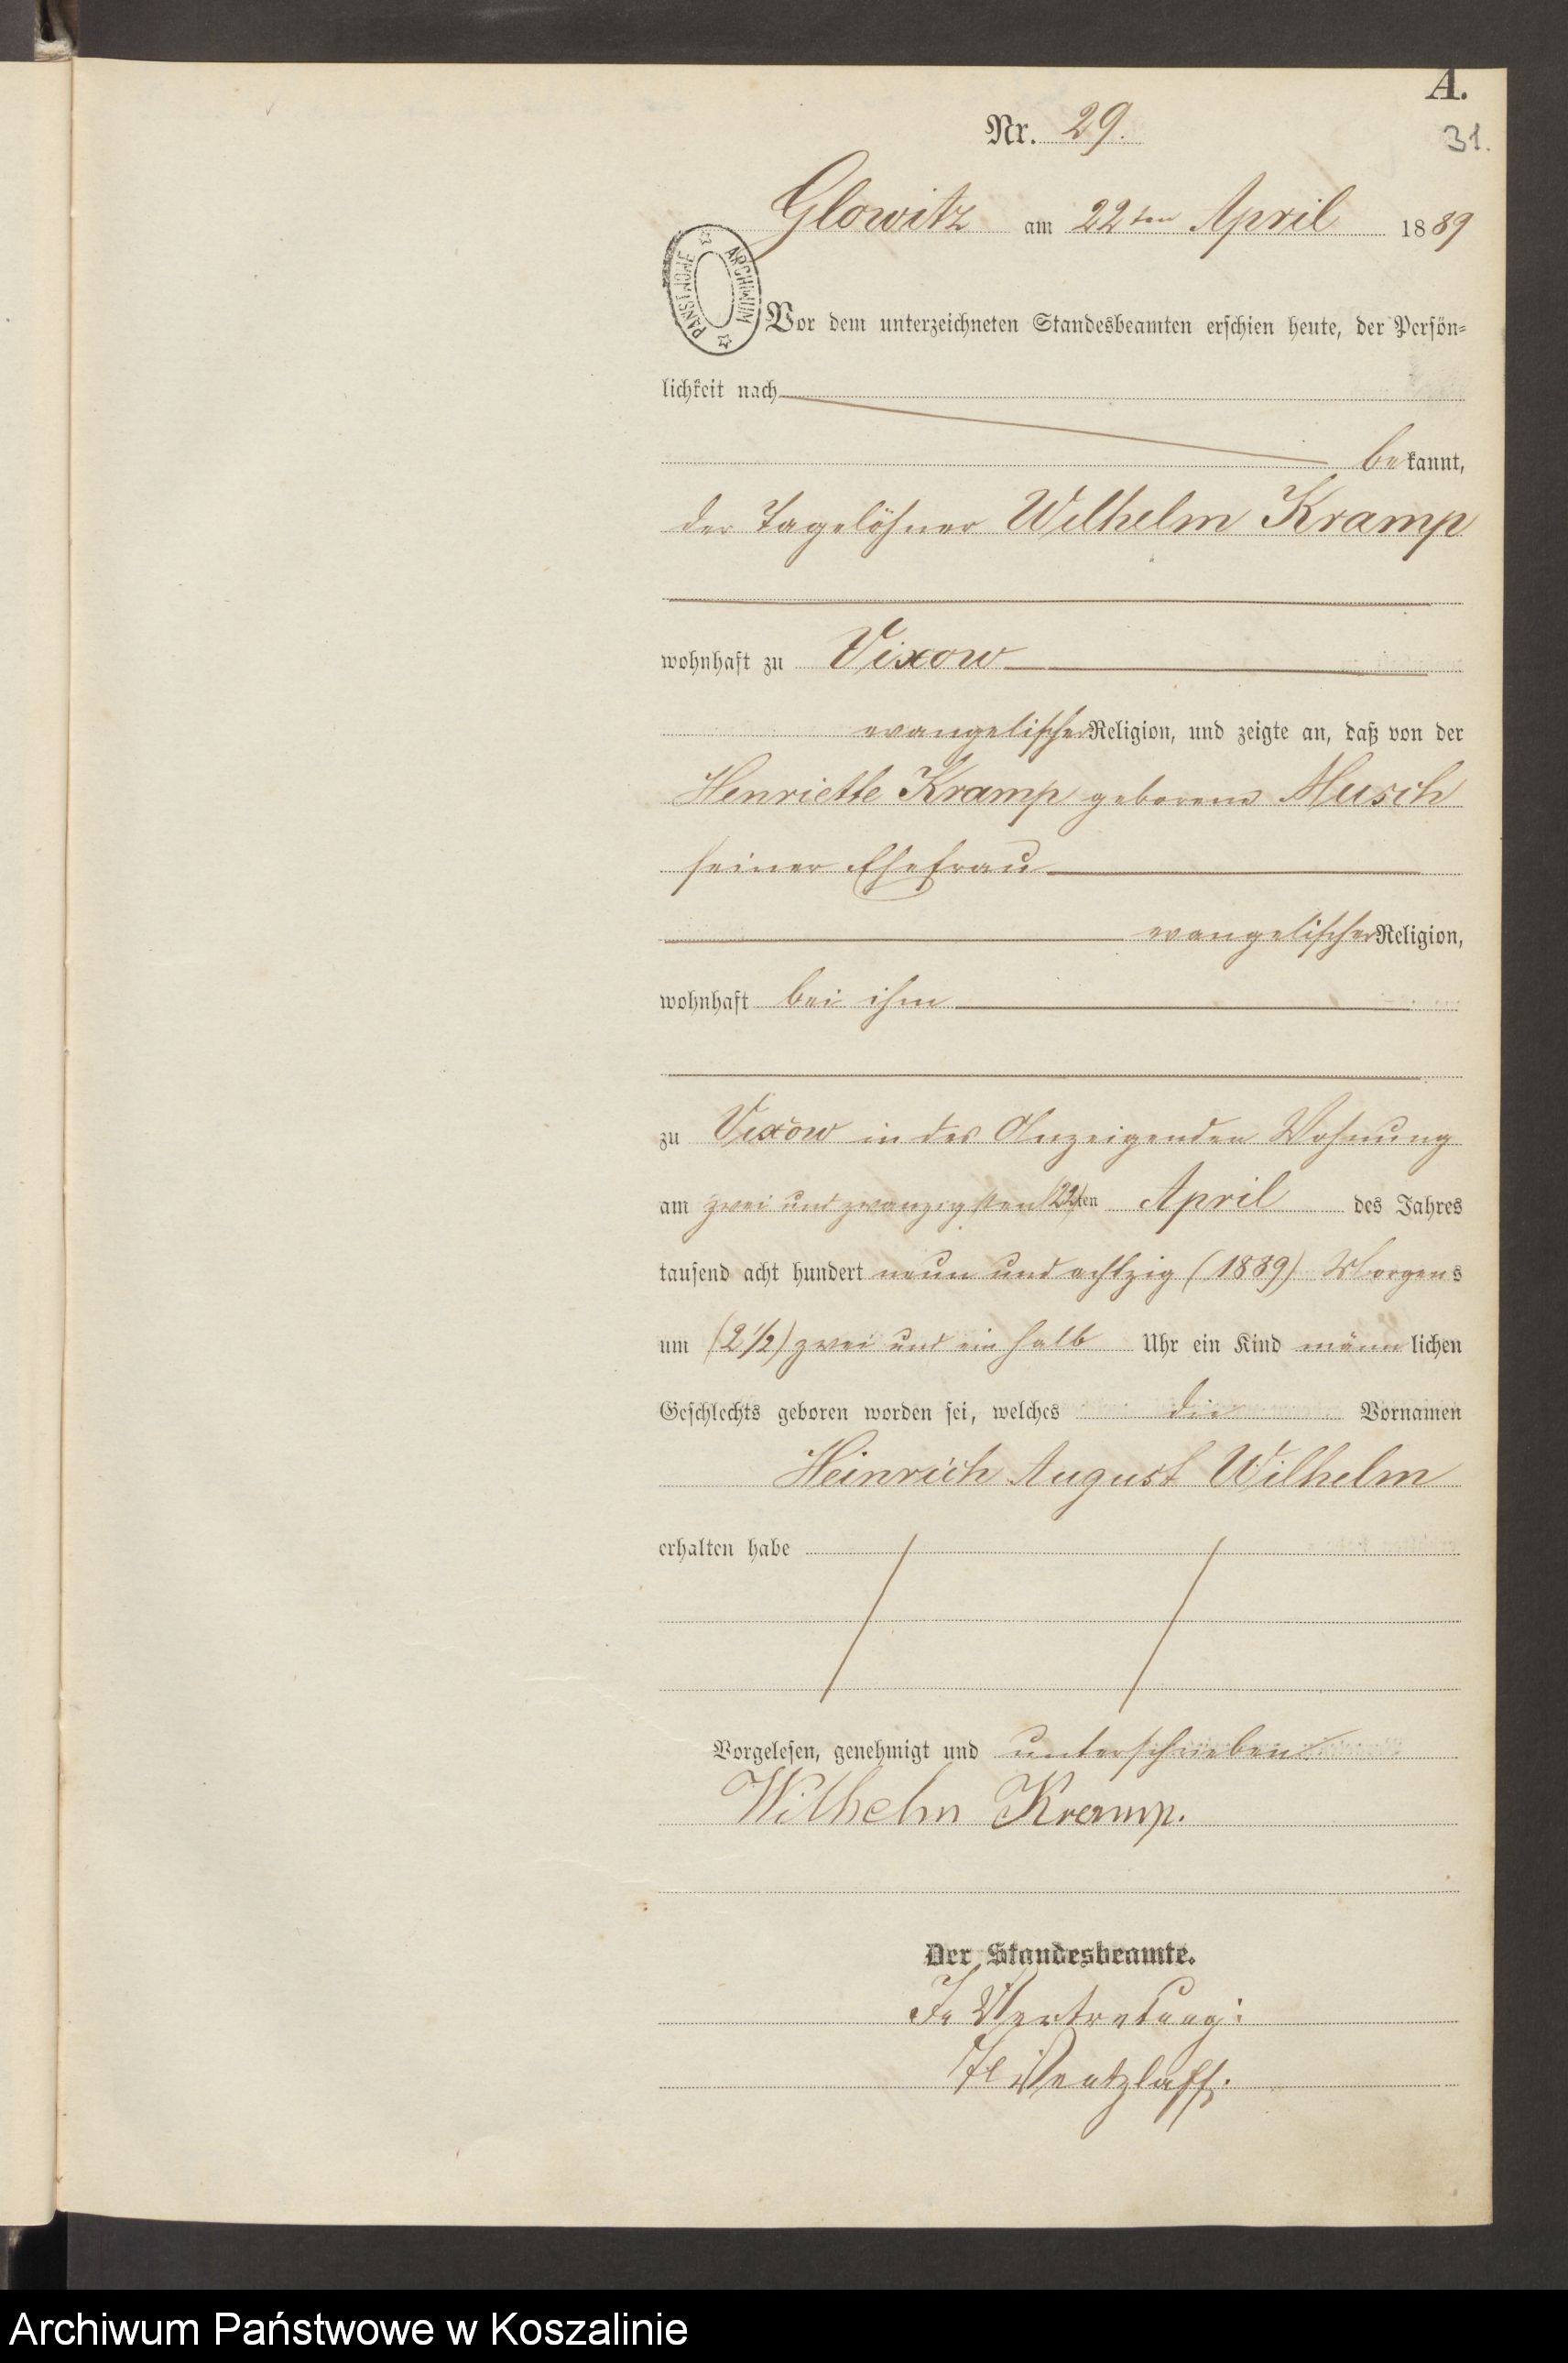 A.
Nr. 29.
31.
Glowitz am 22ten April 1889
ARCHIWUM PAŃSTWOWE
Vor dem unterzeichneten Standesbeamten erschien heute, der Persön=
lichkeit nach
bekannt,
der Tagelöhner Wilhelm Kramp
wohnhaft zu Vixow
evangelischer Religion, und zeigte an, daß von der
Henriette Kramp geborene Musch
seiner Ehefrau
evangelischer Religion,
wohnhaft bei ihm
zu Vixow in des Anzeigenden Wohnung
am zwei und zwanzigsten (22)ten April des Jahres
tausend acht hundert neun und achtzig (1889) Morgens
um (2 1/2) zwei und ein halb Uhr ein Kind männlichen
Geschlechts geboren worden sei, welches die Vornamen
Heinrich August Wilhelm
erhalten habe
Vorgelesen, genehmigt und unterschrieben
Wilhelm Kramp.
Der Standesbeamte.
In Vertretung:
Wentzlaff.
Archiwum Państwowe w Koszalinie